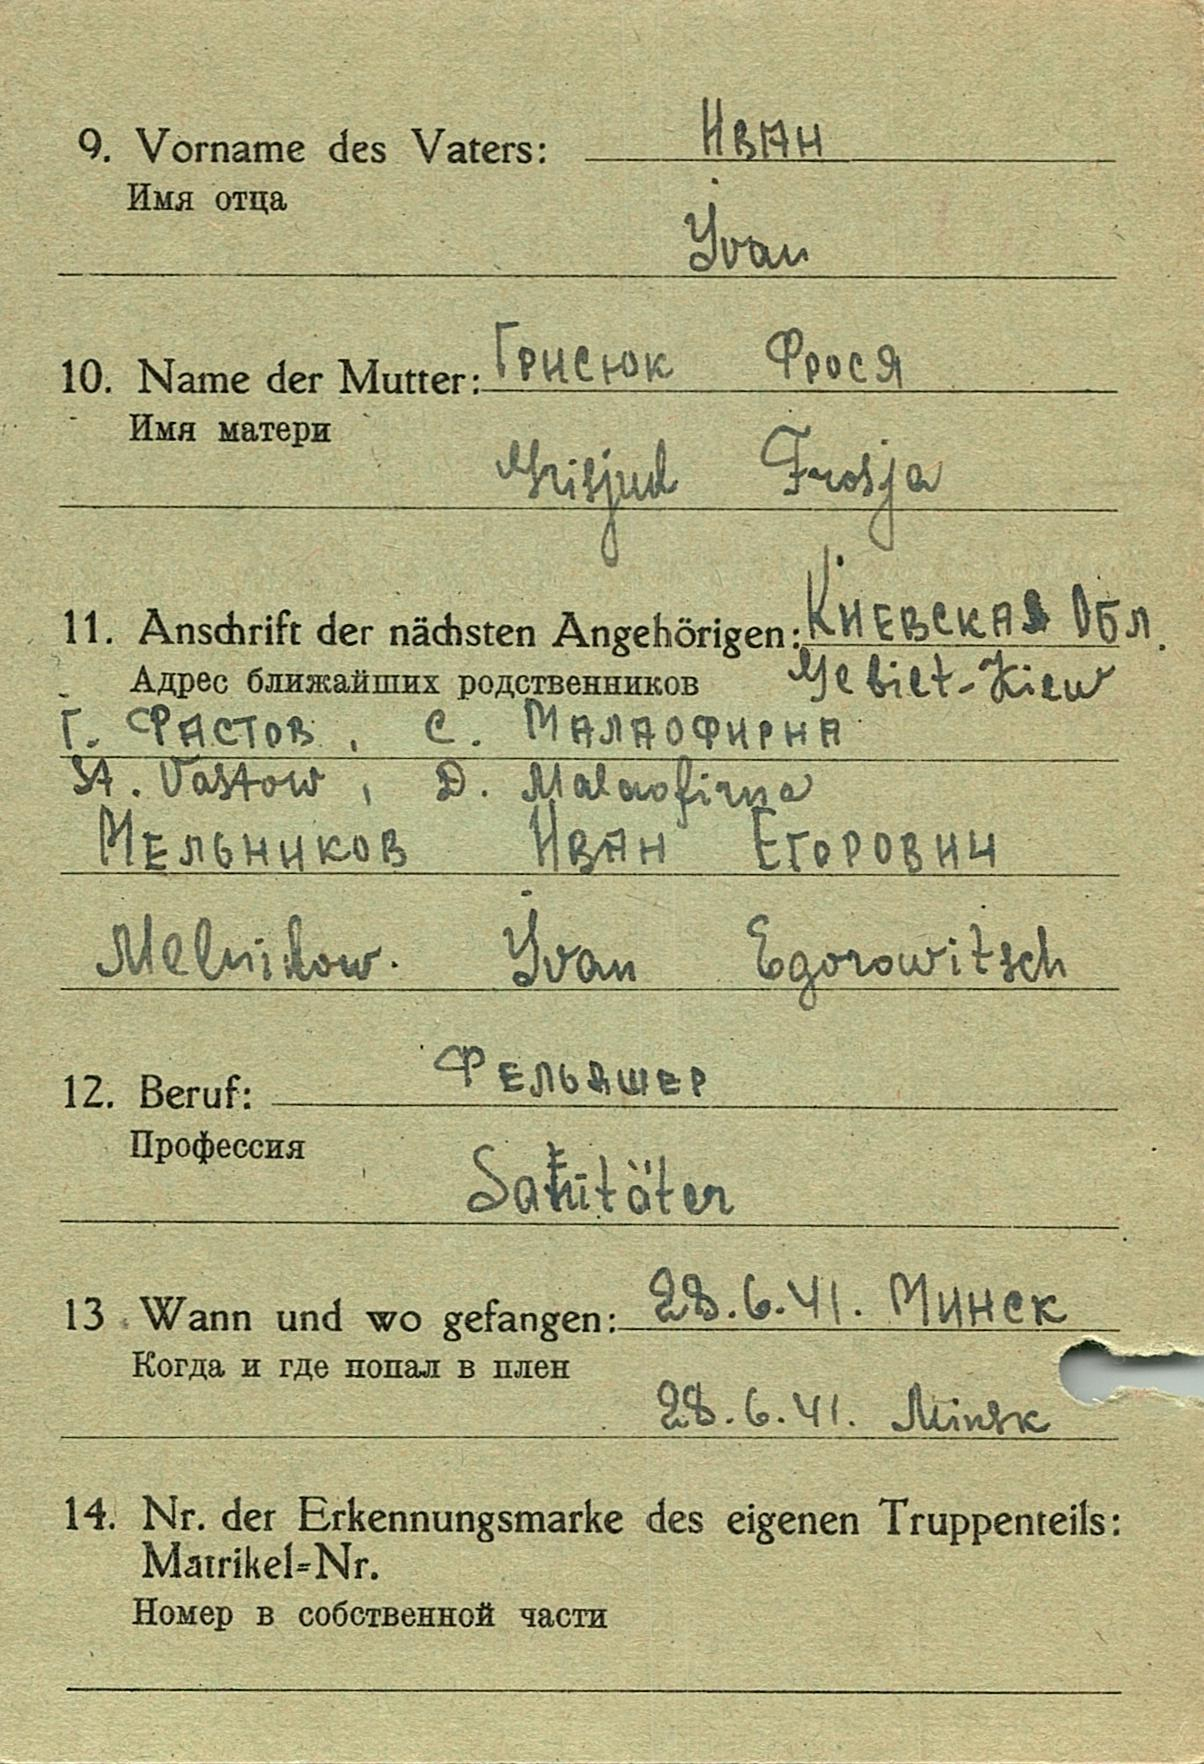 9. Vorname des Vaters: Иван
Имя отца
Yvan
10. Name der Mutter: Грисюк Фрося
Имя матери
Grisjuk Frosja
11. Anschrift der nächsten Angehörigen: Киевская Обл.
Адрес ближайших родственников Gebiet-Kiew
г. Фастов, с. Малаофирна
St. Vastow, D. Malaofirna
Мельников Иван Егорович
Melnikow. Yvan Egorowitsch
12. Beruf: Фельдшер
Профессия
Sanitäter
13. Wann und wo gefangen: 28.6.41. Минск
Когда и где попал в плен
28.6.41. Minsk
14. Nr. der Erkennungsmarke des eigenen Truppenteils:
Matrikel=Nr.
Номер в собственной части